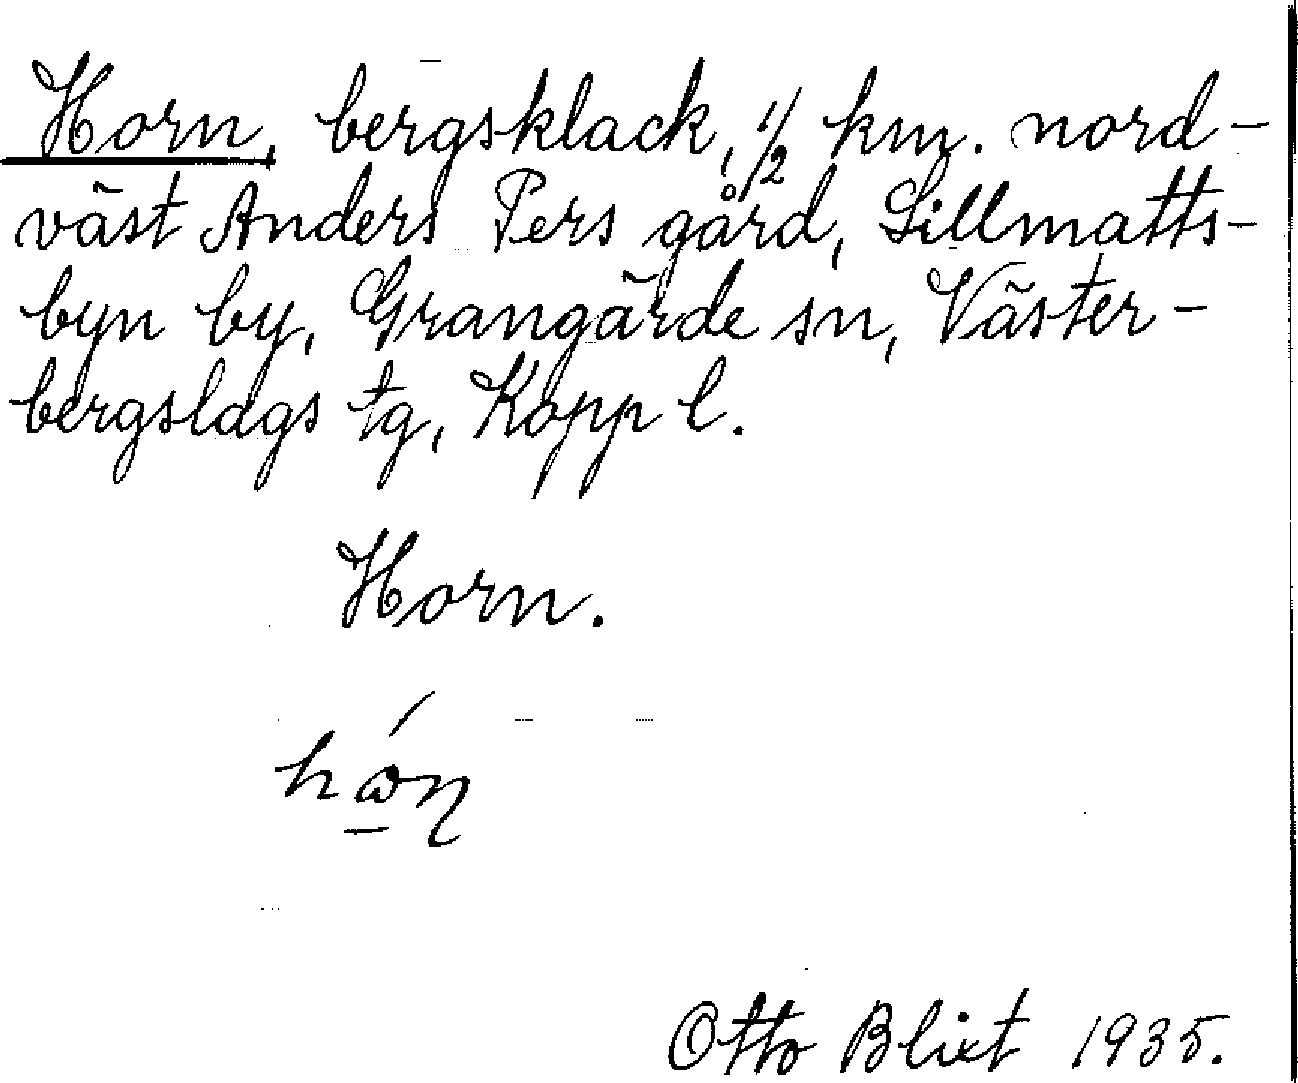 Horn, bergsklack, 1/2 km. nord-
väst Anders Pers gård, Lillmatts-
byn by, Grangärde sn, Väster-
bergslags tg, Kopp l.
Horn.
Otto Blixt 1935.